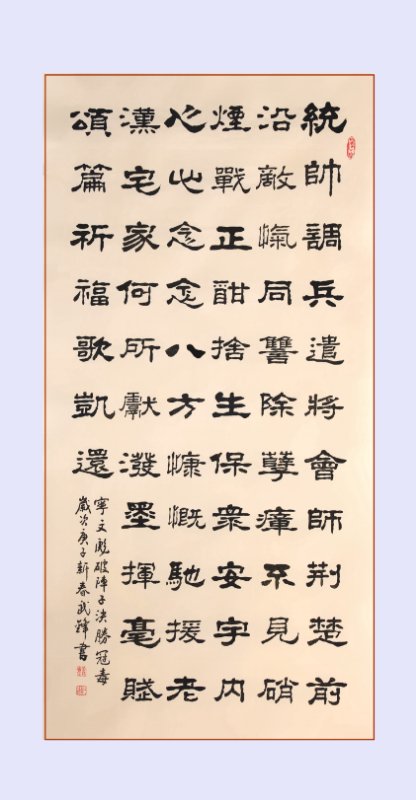 統帥調兵遣將會師荆楚前
沿敵愾同讐除孽瘴不見硝
煙戰正酣捨生保衆安宇内
心心念念八方慷慨馳援老
漢宅家何所獻潑墨揮毫賦
頌篇祈福歌凱還
寧文彪破陣子決勝冠毒
歲次庚子新春武鋒書